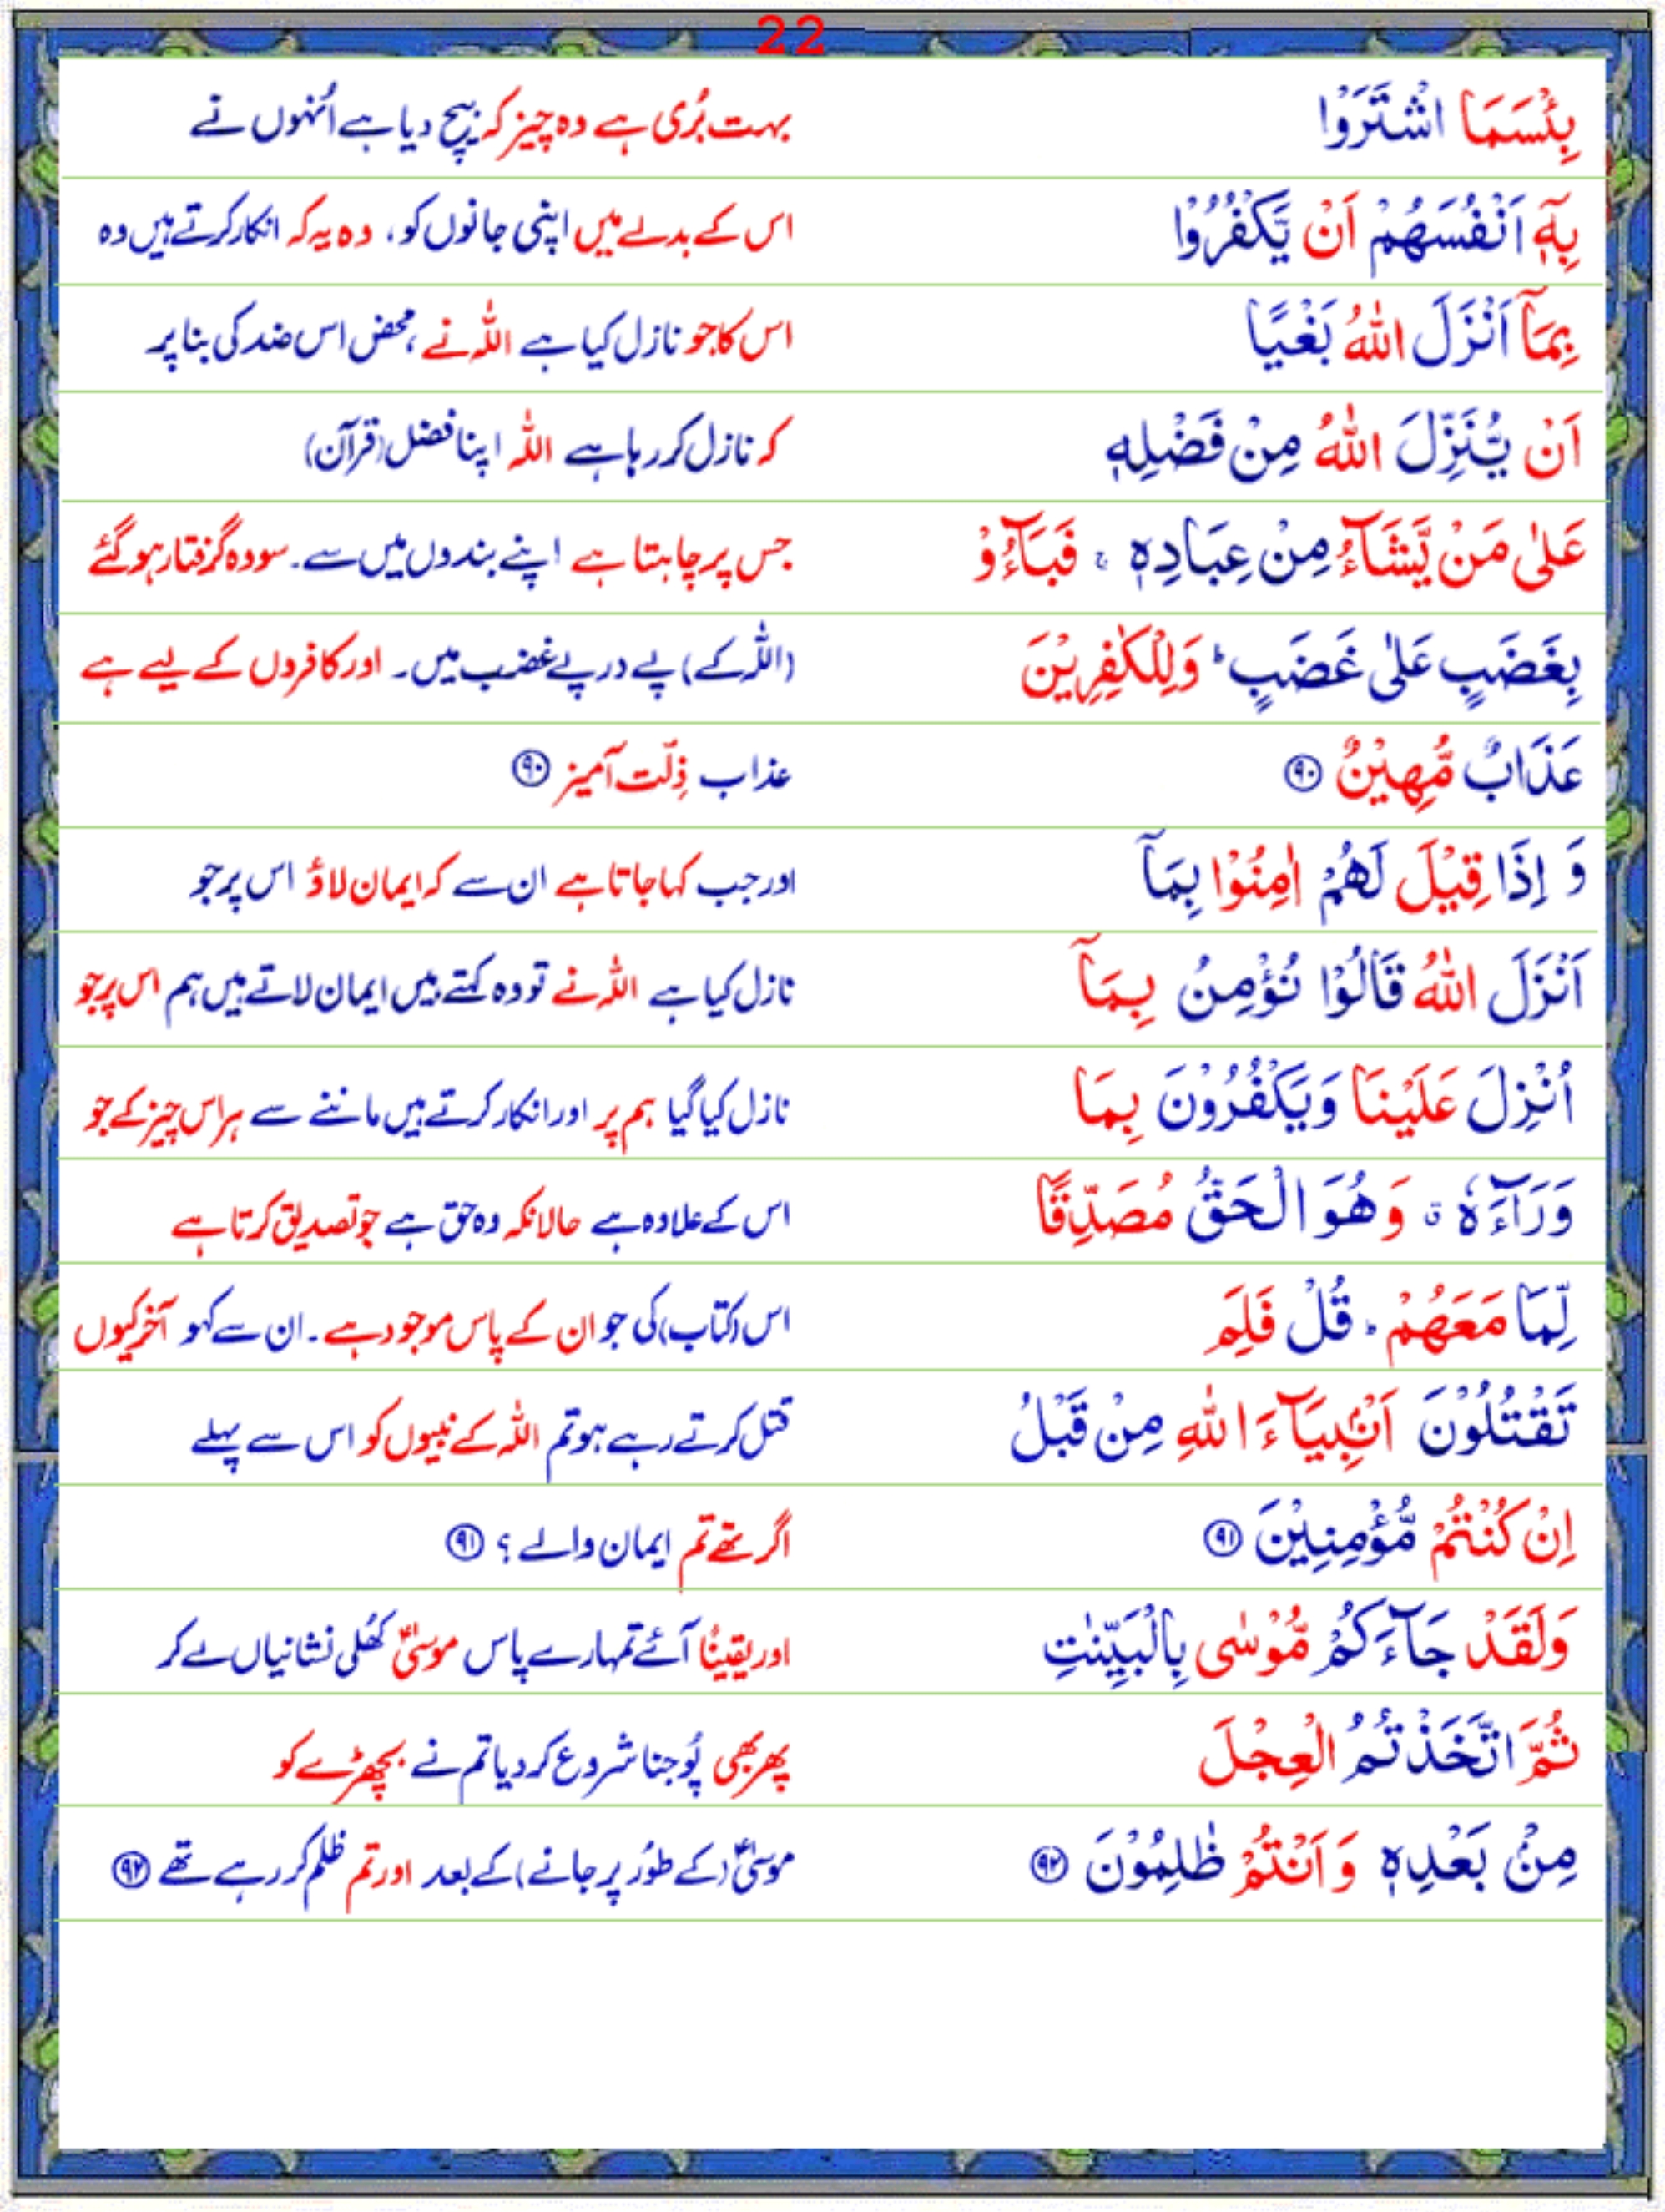 22
بِئْسَمَا اشْتَرَوْا بہت بُری ہے وہ چیز کہ بیچ دیا ہے اُنہوں نے
بِهٖٓ اَنْفُسَهُمْ اَنْ يَّكْفُرُوْا اس کے بدلے میں اپنی جانوں کو، وہ یہ کہ انکار کرتے ہیں وہ
بِمَآ اَنْزَلَ اللّٰهُ بَغْيًا اس کا جو نازل کیا ہے اللہ نے، محض اس ضد کی بنا پر
اَنْ يُّنَزِّلَ اللّٰهُ مِنْ فَضْلِهٖ کہ نازل کر رہا ہے اللہ اپنا فضل (قرآن)
عَلٰى مَنْ يَّشَآءُ مِنْ عِبَادِهٖ ۚ فَبَآءُوْ جس پر چاہتا ہے اپنے بندوں میں سے۔ سو وہ گرفتار ہو گئے
بِغَضَبٍ عَلٰى غَضَبٍ ؕ وَلِلْكٰفِرِيْنَ (اللہ کے) پے در پے غضب میں۔ اور کافروں کے لیے ہے
عَذَابٌ مُّهِيْنٌ ۹۰ عذاب ذِلّت آمیز ۹۰
وَ اِذَا قِيْلَ لَهُمْ اٰمِنُوْا بِمَآ اور جب کہا جاتا ہے ان سے کہ ایمان لاؤ اس پر جو
اَنْزَلَ اللّٰهُ قَالُوْا نُؤْمِنُ بِمَآ نازل کیا ہے اللہ نے تو وہ کہتے ہیں ایمان لاتے ہیں ہم اس پر جو
اُنْزِلَ عَلَيْنَا وَيَكْفُرُوْنَ بِمَا نازل کیا گیا ہم پر اور انکار کرتے ہیں ماننے سے ہر اس چیز کے جو
وَرَآءَهٗ ۗ وَهُوَ الْحَقُّ مُصَدِّقًا اس کے علاوہ ہے حالانکہ وہ حق ہے جو تصدیق کرتا ہے
لِّمَا مَعَهُمْ ؕ قُلْ فَلِمَ اس (کتاب) کی جو ان کے پاس موجود ہے۔ ان سے کہو آخر کیوں
تَقْتُلُوْنَ اَنْۢبِيَآءَ اللّٰهِ مِنْ قَبْلُ قتل کرتے رہے ہو تم اللہ کے نبیوں کو اس سے پہلے
اِنْ كُنْتُمْ مُّؤْمِنِيْنَ ۹۱ اگر تھے تم ایمان والے ؟ ۹۱
وَلَقَدْ جَآءَكُمْ مُّوْسٰى بِالْبَيِّنٰتِ اور یقینًا آئے تمہارے پاس موسیٰؑ کھُلی نشانیاں لے کر
ثُمَّ اتَّخَذْتُمُ الْعِجْلَ پھر بھی پُوجنا شروع کر دیا تم نے بچھڑے کو
مِنْۢ بَعْدِهٖ وَاَنْتُمْ ظٰلِمُوْنَ ۹۲ موسیٰؑ (کے طُور پر جانے) کے بعد اور تم ظلم کر رہے تھے ۹۲